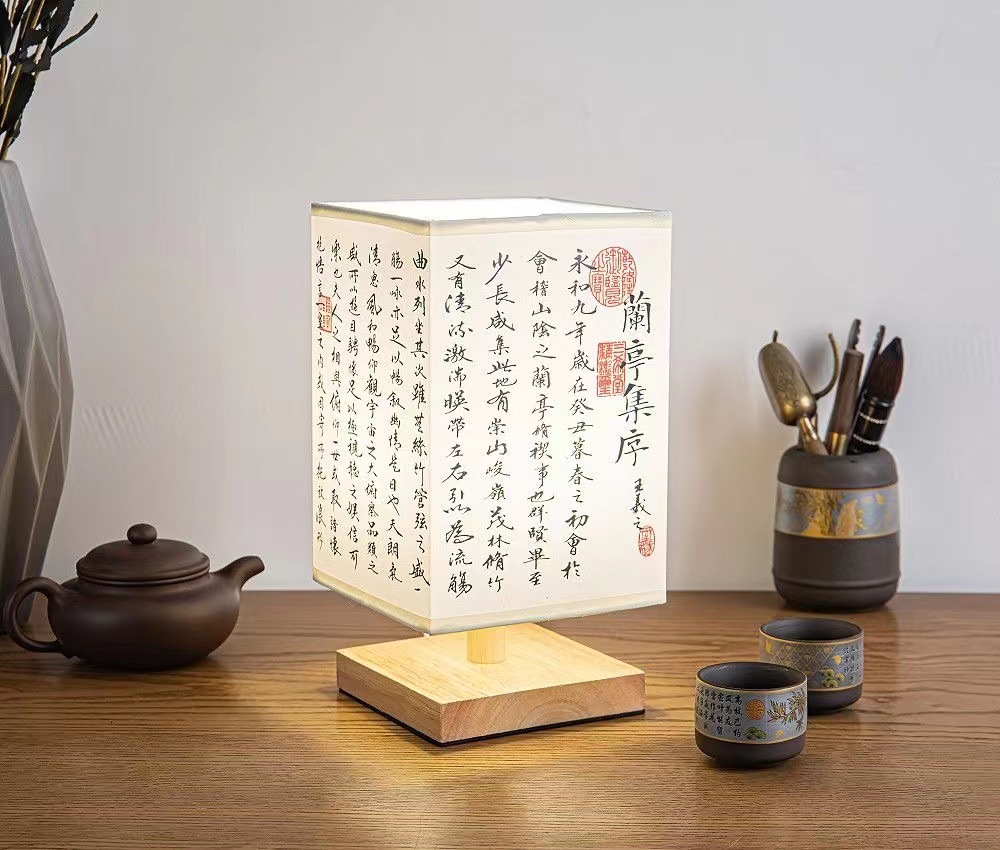 蘭亭集序
王羲之
乾隆御覽之寶
三希堂精鑑璽
永和九年歲在癸丑暮春之初會於
會稽山陰之蘭亭脩禊事也群賢畢至
少長咸集此地有崇山峻嶺茂林脩竹
又有清流激湍暎帶左右引以為流觴
曲水列坐其次雖無絲竹管弦之盛一
觴一詠亦足以暢敘幽情是日也天朗氣
清惠風和暢仰觀宇宙之大俯察品類之
盛所以遊目騁懷足以極視聽之娛信可
樂也夫人之相與俯仰一世或取諸懷
抱悟言一室之內或因寄所託放浪形